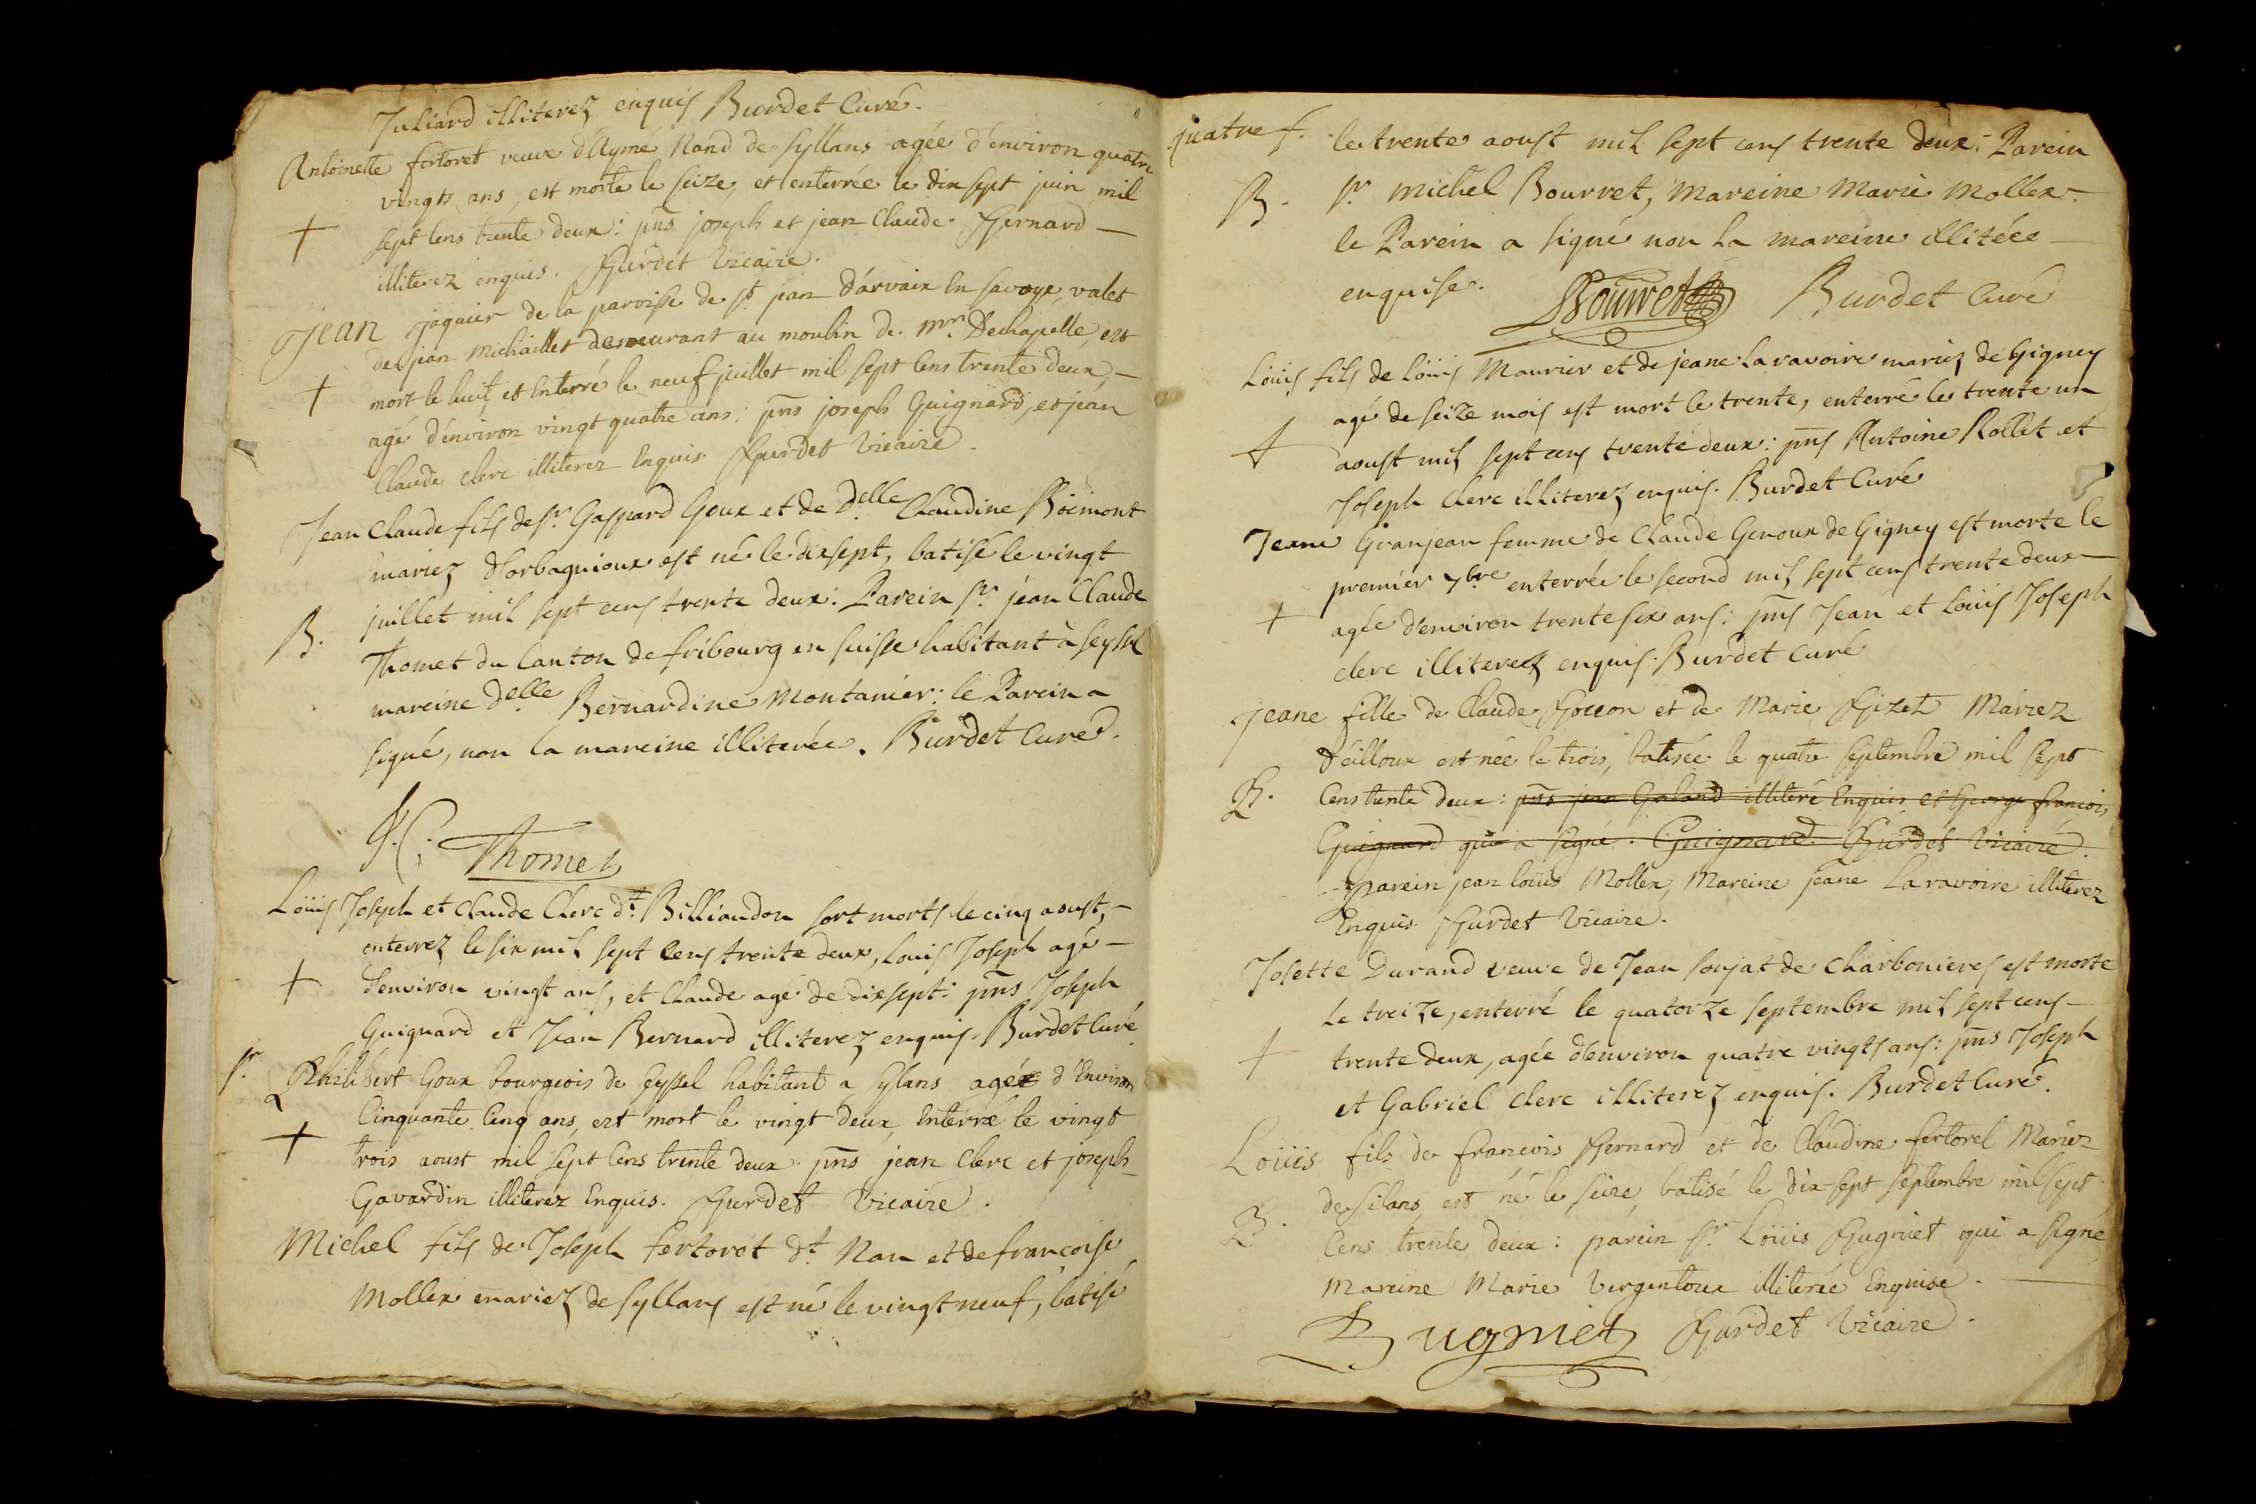 Juliard illiterez enquis Burdet Curé.
Antoinette fertoret veuve d'Aymé Nand de Syllans agée d'environ quatre
vingts ans, est morte le seize, et enterrée le dix sept juin mil
+ sept cens trente deux: pñs joseph et jean Claude Bernard
illiterez enquis. Burdet Vicaire.
Jean jaquier de la paroisse de st jean d'arvaix en savoye, valet
de jean Michaillet demeurant au moulin de Mr. Dechapelle, est
+ mort le huit, et Enterré le neuf juillet mil sept cens trente deux,
agé d'environ vingt quatre ans: pñs joseph Guignard, et jean
Claude clerc illiterez Enquis. Burdet Vicaire.
Jean Claude fils de sr. Gaspard Goux et de Delle Claudine Boëmont
mariez d'orbagnioux est né le dixsept, batisé le vingt
B. juillet mil sept cens trente deux: Parein sr. jean Claude
Thomet du Canton de fribourg en suisse habitant à Seyssel
mareine Delle Bernardine Montanier: le Parein a
signé, non la mareine illiterée. Burdet Curé.
J. C. Thomet
Loüis Joseph et Claude Clerc dt. Billiaudon sort morts le cinq aoust,
enterrez le six mil sept cens trente deux, Louis Joseph agé
+ d'environ vingt ans, et Claude agé de dixsept: pñs Joseph
Guignard et Jean Bernard illiterez enquis. Burdet Curé
sr. Philibert Goux bourgeois de Seyssel habitant a Sylans agé d'Environ
+ Cinquante Cinq ans, est mort le vingt deux, Enterré le vingt
trois aoust mil sept Cens trente deux. pñs jean Clerc et joseph
Gavardin illiterez Enquis. Burdet Vicaire.
Michel fils de Joseph fertoret dt. Nan et de françoise
Mollex mariez de Syllans est né le vingt neuf, batisé
quatre f.
le trente aoust mil sept cens trente deux: Parein
B. sr. Michel Bourret, Mareine Marie Mollex.
le Parein a signé non la mareine illitéée
enquise. Bourret Burdet Curé
Loüis fils de Loüis Maurier et de jeane Laravoire mariez de Gigney
agé de seize mois est mort le trente, enterré le trente un
+ aoust mil sept cens trente deux: pñs Antoine Rollet et
Joseph Clerc illiterez enquis. Burdet Curé
Jeane Granjean femme de Claude Genoux de Gigney est morte le
premier 7bre enterrée le second mil sept cens trente deux
+ agée d'environ trente six ans: pñs Jean et Loüis Joseph
clerc illiterez enquis. Burdet Curé
jeane fille de Claude Goccon et de Marie Bizet Mariez
d'eilloux est née le trois, batisée le quatre septembre mil sept
B. Cens trente deux: pñs jean Galand illiteré Enquis et George francois
Guignard qui a signé. Guignard. Burdet Vicaire.
parein jean loüis Mollex, Mareine jeane Laravoire illiterez
Enquis. Burdet Vicaire.
Josette Durand veuve de Jean Soujat de Charbonieres est morte
le treize, enterré le quatorze septembre mil sept cens
+ trente deux, agée d'environ quatre vingts ans: pñs Joseph
et Gabriel clerc illiterez enquis. Burdet Curé.
Loüis fils de francois Bernard et de Claudine fertorel Mariez
de Silans est né le seize, batisé le dix-sept septembre mil sept
B. Cens trente deux: parein sr. Loüis Bugniet qui a signé
Mareine Marie Vergentoux illiterée Enquise.
Bugniet Burdet Vicaire.